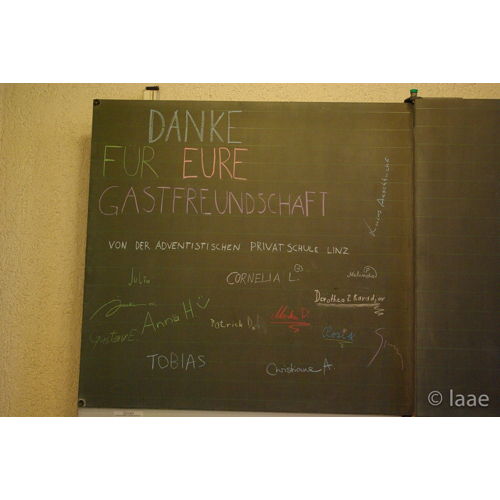 DANKE
FÜR EURE
GASTFREUNDSCHAFT
VON DER ADVENTISTISCHEN PRIVATSCHULE LINZ
Julia
CORNELIA L.
Melinda
Dorothea
Gustav E.
Anna H
Patrick D.
TOBIAS
Christiane A.
© laae